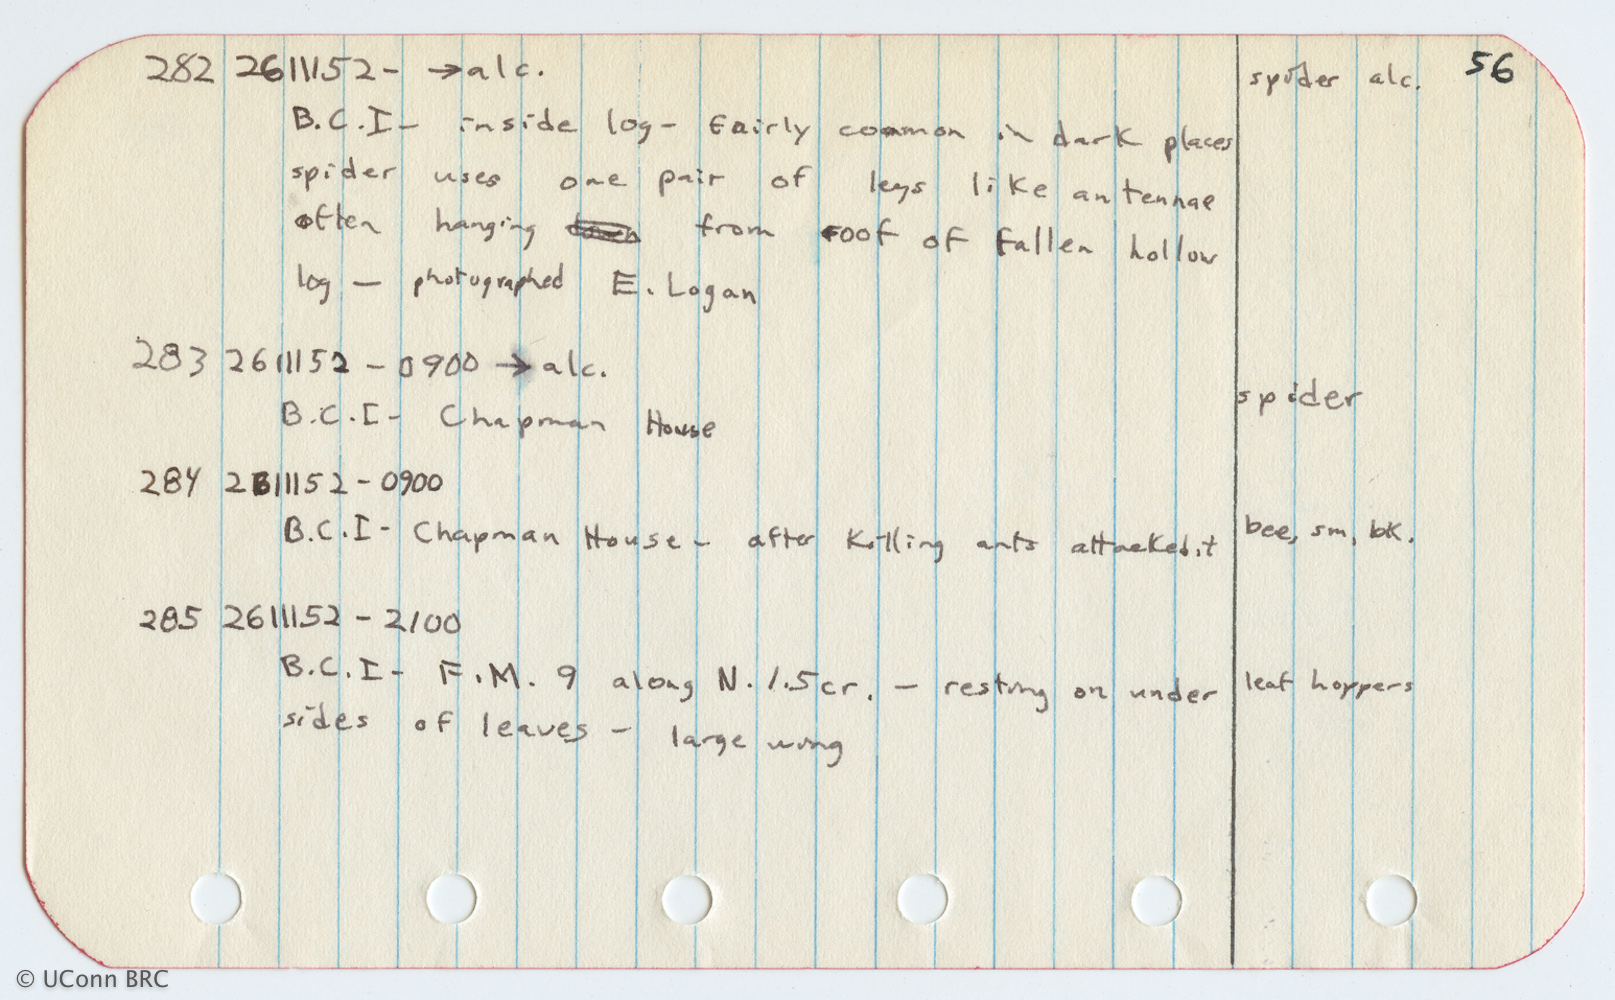 56
282 2611152- →alc. spider alc.
B.C.I- inside log- fairly common in dark places
spider uses one pair of legs like antennae
often hanging from roof of fallen hollow
log — photographed E. Logan
283 2611152 - 0900 → alc.
B.C.I- Chapman House spider
284 2611152 - 0900
B.C.I- Chapman House- after killing ants attacked it bee, sm, bk.
285 2611152 - 2100
B.C.I- F.M. 9 along N. 1.5cr. - resting on under leaf hoppers
sides of leaves - large wing
© UConn BRC